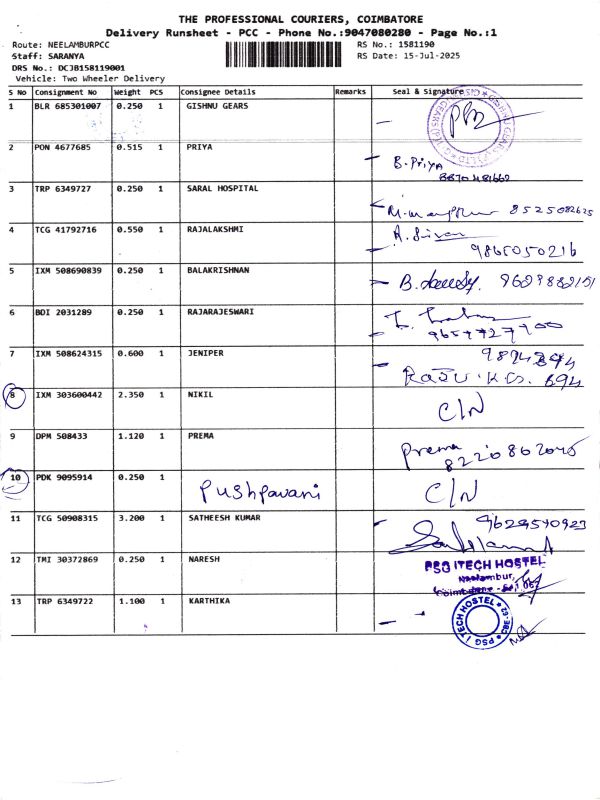 THE PROFESSIONAL COURIERS, COIMBATORE
Delivery Runsheet - PCC - Phone No.:9047080280 - Page No.:1
Route: NEELAMBURPCC RS No.: 1581190
Staff: SARANYA RS Date: 15-Jul-2025
DRS No.: DCJB158119001
Vehicle: Two Wheeler Delivery
S No Consignment No Weight PCS Consignee Details Remarks Seal & Signature
1 BLR 685301007 0.250 1 GISHNU GEARS
2 PON 4677685 0.515 1 PRIYA B. Priya
3 TRP 6349727 0.250 1 SARAL HOSPITAL 8525082625
4 TCG 41792716 0.550 1 RAJALAKSHMI
9865050216
5 IXM 508690839 0.250 1 BALAKRISHNAN
6 BDI 2031289 0.250 1 RAJARAJESWARI
7 IXM 508624315 0.600 1 JENIPER
8 IXM 303600442 2.350 1 NIKIL C/N
9 DPM 508433 1.120 1 PREMA Prema
10 PDK 9095914 0.250 1 Pushpavani C/N
11 TCG 50908315 3.200 1 SATHEESH KUMAR
12 TMI 30372869 0.250 1 NARESH PSG ITECH HOSTEL
Neelambur,
13 TRP 6349722 1.100 1 KARTHIKA PSG ITECH HOSTEL